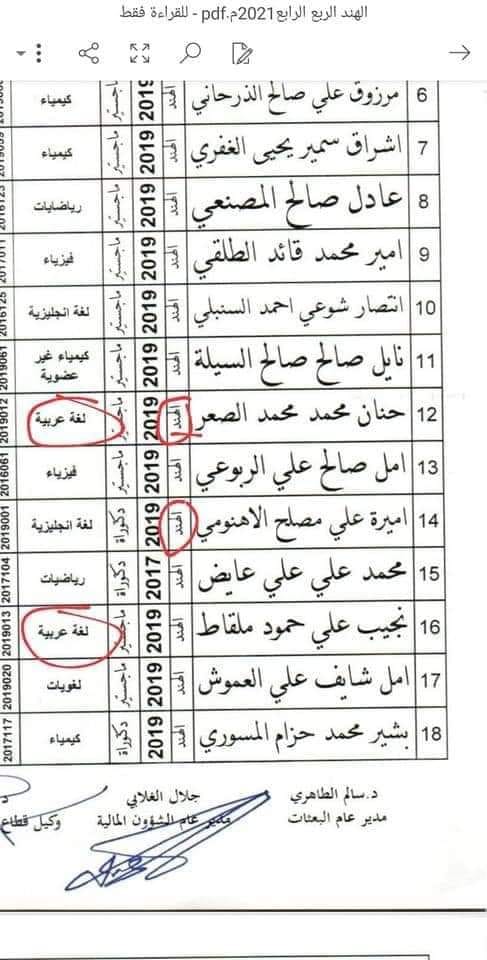 الهند الربع الرابع2021م.pdf - للقراءة فقط
6 مرزوق علي صالح الذرحاني الهند 2019 ماجستير كيمياء
7 اشراق سمير يحيى الغفري الهند 2019 ماجستير كيمياء
8 عادل صالح المصنعي الهند 2019 ماجستير رياضايات
9 امير محمد قائد الطلقي الهند 2019 ماجستير فيزياء
10 انتصار شوعي احمد السنبلي الهند 2019 ماجستير لغة انجليزية 2016125
11 نايل صالح صالح السيلة الهند 2019 ماجستير كيمياء غير عضوية 2019061
12 حنان محمد محمد الصعر الهند 2019 ماجستير لغة عربية 2019012
13 امل صالح علي الربوعي الهند 2019 ماجستير فيزياء 2016061
14 اميرة علي مصلح الاهنومي الهند 2019 دكتوراة لغة انجليزية 2019001
15 محمد علي علي عايض الهند 2017 دكتوراة رياضيات 2017104
16 نجيب علي حمود ملقاط الهند 2019 ماجستير لغة عربية 2019013
17 امل شايف علي العموش الهند 2019 ماجستير لغويات 2019020
18 بشير محمد حزام المسوري الهند 2019 دكتوراة كيمياء 2017117
د.سالم الطاهري جلال الغلابي د
مدير عام البعثات مدير عام الشؤون المالية وكيل قطاع